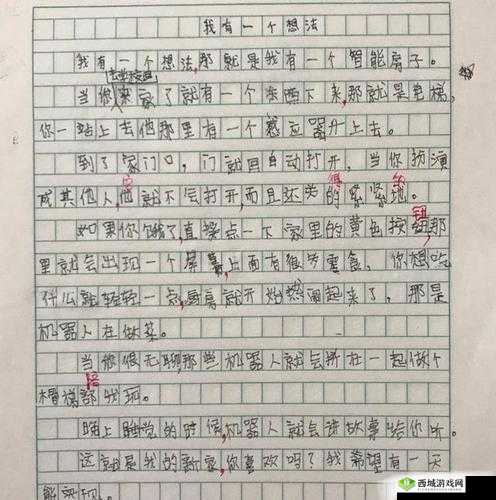 我有一个想法
我有一个想法,那就是我有一个智能房子。
当你来家了就有一个东西下来,那就是电梯,
你一站上去他那里有一个感应器升上去。
到了家门口,门就回自动打开,当你扮演
成其他人,他就不会打开,而且还关的紧紧地。
如果你饿了,直接点一下家里的黄色按钮,那
里就会出现一个屏幕,上面有很多零食,你想吃
什么就轻轻一点,厨房就开始热闹起来了,那是
机器人在做菜。
当你很无聊那些机器人就会拼在一起做个
滑梯陪我玩。
晚上睡觉的时候,机器人就会讲故事给你听。
这就是我的新家,你喜欢吗?我希望有一天
能实现。
西城游戏网